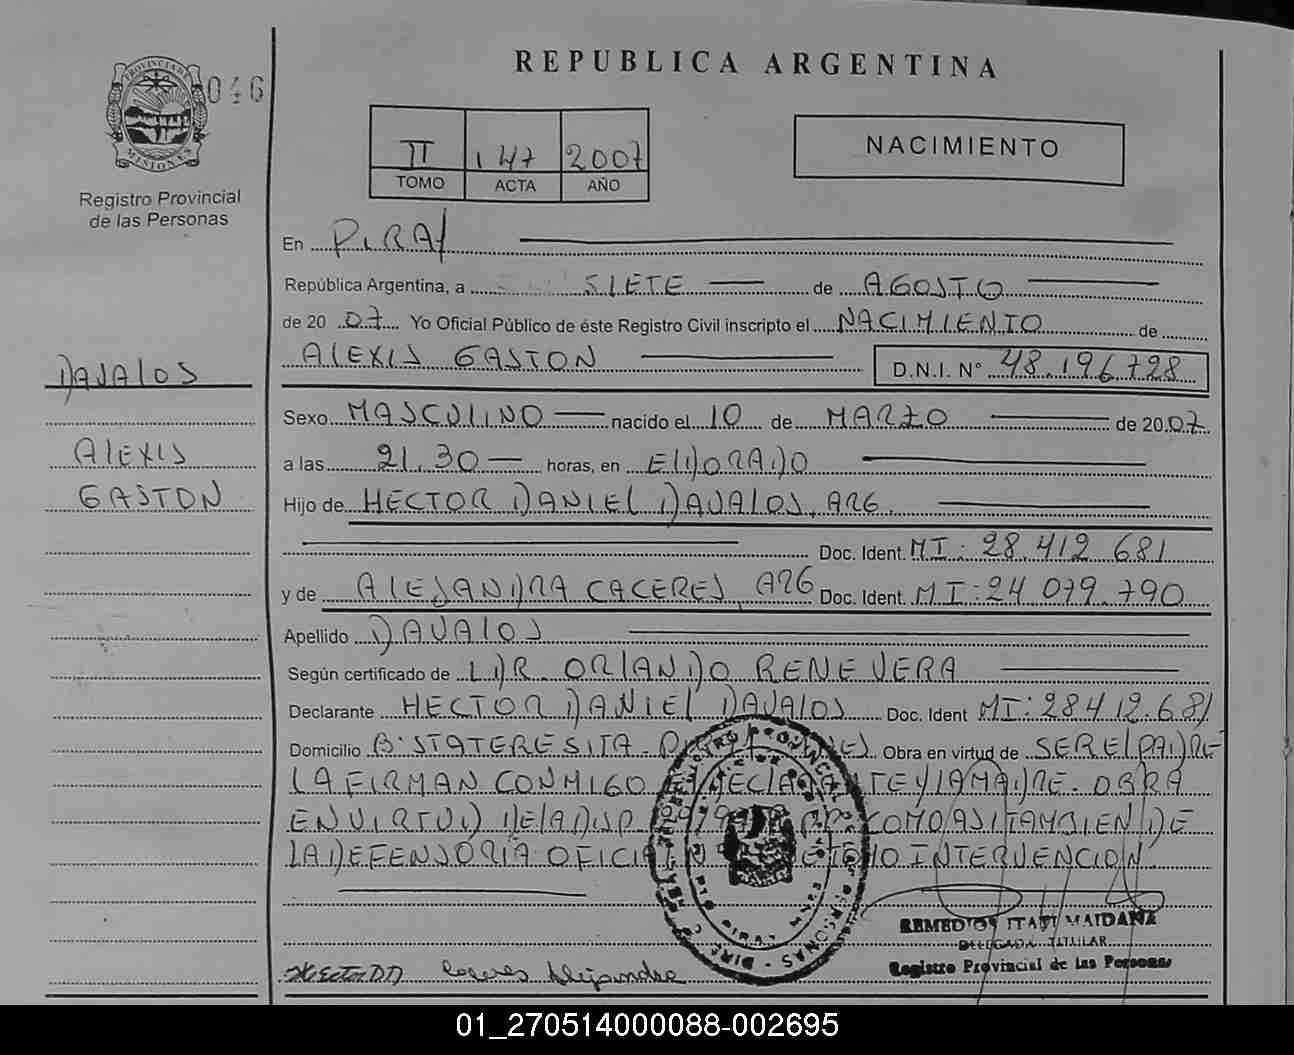 REPUBLICA ARGENTINA
PROVINCIA DE MISIONES
046
Registro Provincial
de las Personas
II 147 2007
TOMO ACTA AÑO
NACIMIENTO
En PIRAY
República Argentina, a SIETE de AGOSTO
de 2007 Yo Oficial Público de éste Registro Civil inscripto el NACIMIENTO de
ALEXIS GASTON D.N.I. N° 48.196.728
DAVALOS
ALEXIS
GASTON
Sexo MASCULINO nacido el 10 de MARZO de 2007
a las 21.30 horas, en ELDORADO
Hijo de HECTOR DANIEL DAVALOS, ARG.
Doc. Ident. MI: 28.412.681
y de ALEJANDRA CACERES, ARG Doc. Ident. MI: 24.079.790
Apellido DAVALOS
Según certificado de DR. ORLANDO RENE VERA
Declarante HECTOR DANIEL DAVALOS Doc. Ident MI: 28412.681
Domicilio Bº STA TERESITA Obra en virtud de SER EL PADRE
LA FIRMAN CONMIGO DECLARANTE Y LA MADRE. OBRA
EN VIRTUD DE LA DISP. COMO ASI TAMBIEN DE
LA DEFENSORIA OFICIAL INTERVENCION
Hector DD Caceres Alejandra
REMEDIOS ITATI MAIDANA
DELEGADA TITULAR
Registro Provincial de las Personas
01_270514000088-002695